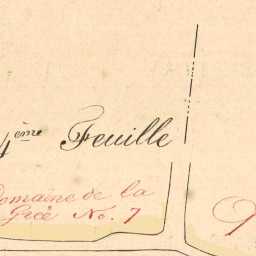 4ème Feuille
Domaine de la
Grée No. 7